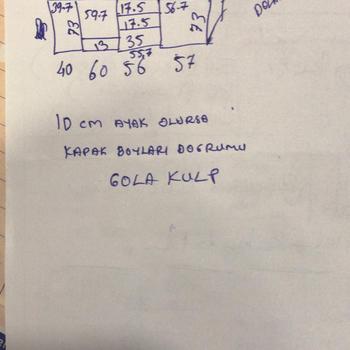 39.7 59.7 17.5 56.7
73 17.5 73
13 35
55.7
40 60 56 57
10 CM AYAK OLURSA
KAPAK BOYLARI DOGRUMU
GOLA KULP